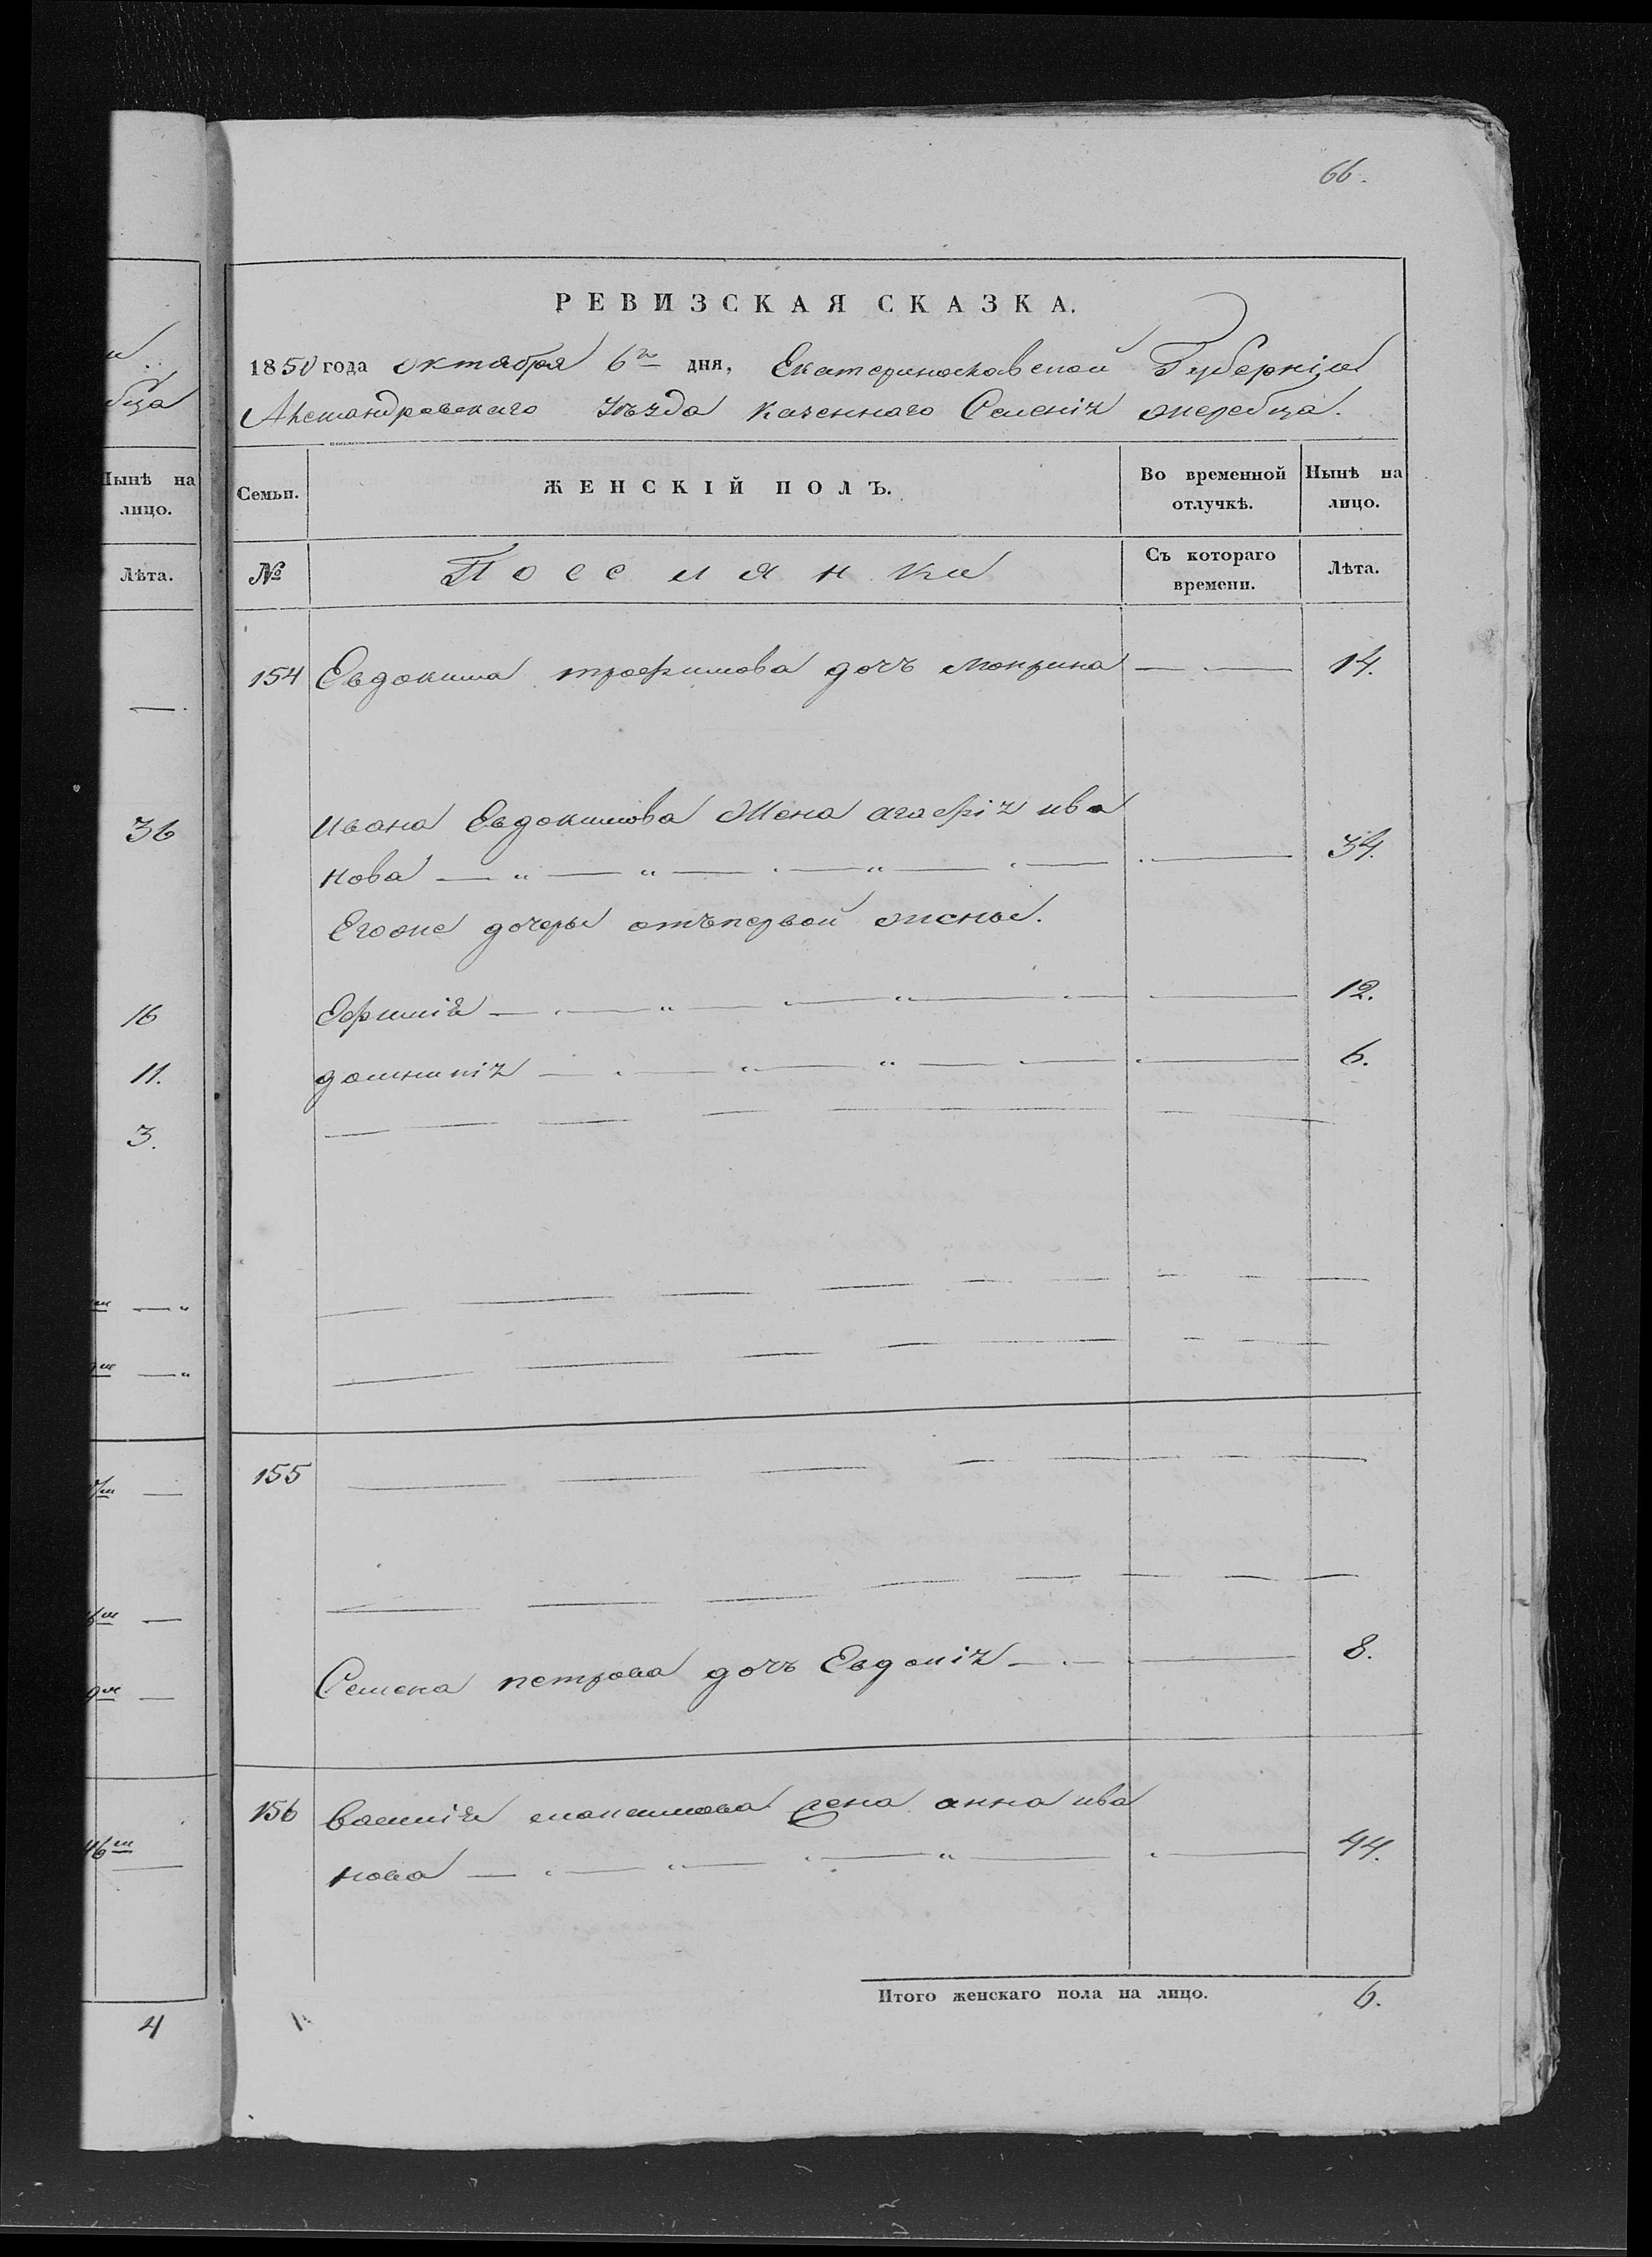 66.
РЕВИЗСКАЯ СКАЗКА.
1850 года октября 6го дня, Екатеринославской Губерніи
Александровскаго Уѣзда казеннаго Селенія жеребца.
Семьи. ЖЕНСКІЙ ПОЛЪ. Во временной отлучкѣ. Нынѣ на лицо.
№ Поселянки Съ котораго времени. Лѣта.
154 Евдокима трофимова дочь мокрина — — 14.
Ивана Евдокимова Жена агафія ива
нова — " — " — " — 34.
Егоже дочеры отъ первой жены.
Ефимія — " — " — 12.
домникія — " — " — 6.
155
Семена петрова дочь Евдокія — — 8.
156 василія максимова жена анна ива
нова — " — " — 44.
Итого женскаго пола на лицо. 6.
бца
Нынѣ на
лицо.
Лѣта.
36
16
11.
3.
46
4